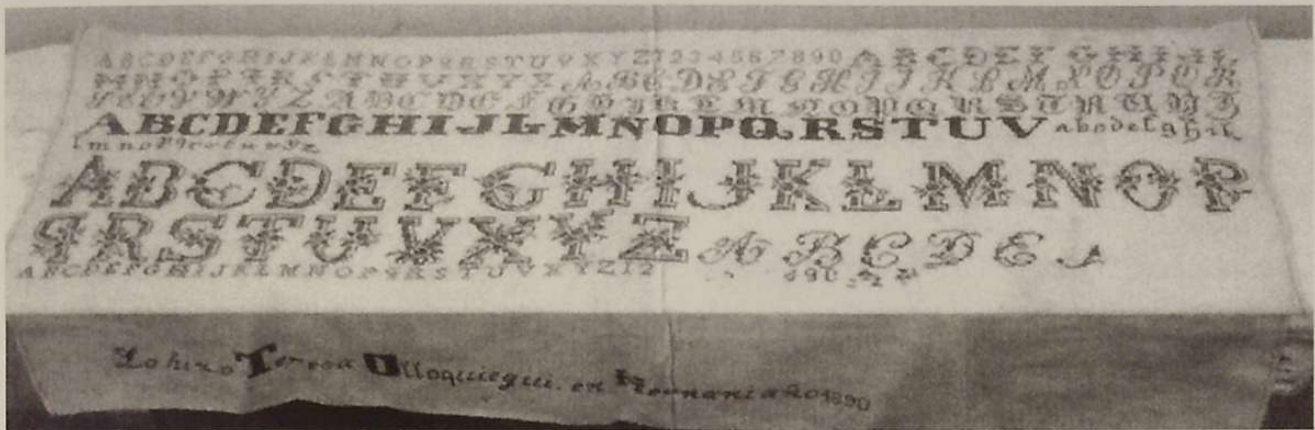 A B C D E F G H I J K L M N O P Q R S T U V X Y Z 1 2 3 4 5 6 7 8 9 0 A B C D E F G H I J K L
M N O P Q R S T U V X Y A B C D E F G H I J K L M N O P Q R
S T U V W Y Z A B C D E F G H I K L M N O P Q R S T
A B C D E F G H I J L M N O P Q R S T U V a b c d e f g h i l
l m n o p q r s t u v y z
A B C D E F G H I J K L M N O P
Q R S T U V X Y Z A B C D E
A B C D E F G H I J K L M N O P Q R S T U V X Y Z 1 2 4 9 0
Lo hizo Teresa Olloquiegui. en Hernani año 1890